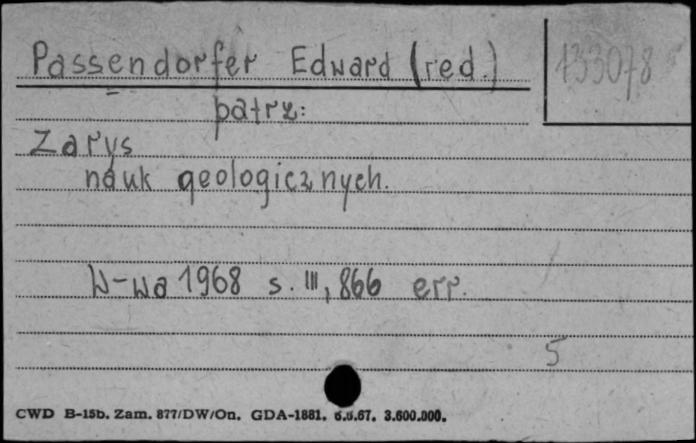 Passendorfer Edward (red.)
133078
patrz:
Zarys
nauk geologicznych.
W-wa 1968 s. III, 866 err.
5
CWD B-15b. Zam. 877/DW/On. GDA-1881. 6.6.67. 3.600.000.